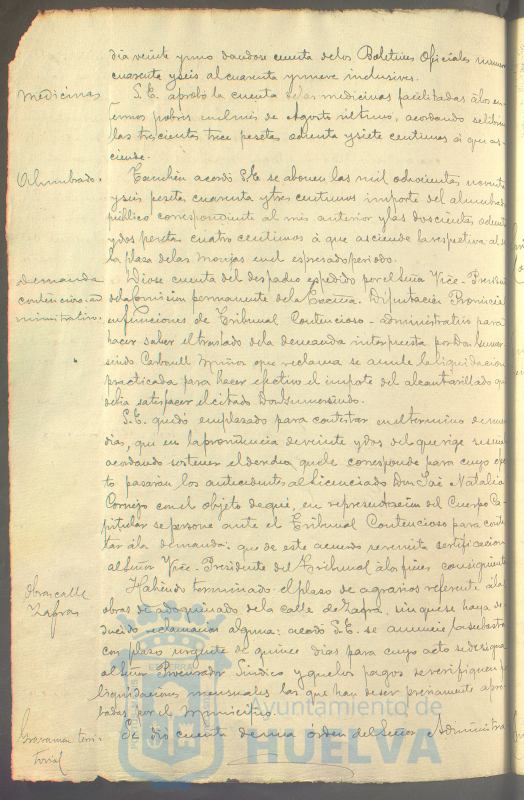 dia veinte y uno dandose cuenta de los Boletines Oficiales numero
cuarenta y seis al cuarenta y nueve inclusives.
Medicinas
S.E. aprobó la cuenta de las medicinas facilitadas á los en-
fermos pobres en el mes de Agosto ultimo, acordando se libren
las trescientas trece pesetas ochenta y siete centimos á que as-
ciende.
Alumbrado.
Tambien acordó S.E. se abonen las mil ochocientas noventa
y seis pesetas cuarenta y tres centimos importe del alumbrado
público correspondiente al mes anterior y las doscientas ochenta
y dos pesetas cuatro centimos á que asciende la respectiva al de
la plaza de las Monjas en el espresado periodo.
Demanda
contencioso ad
ministrativo.
Diose cuenta del despacho espedido por el Señor Vice-Presidente
de la Comision permanente de la Excma. Diputación Provincial
en funciones de Tribunal Contencioso-administrativo para
hacer saber el traslado de la demanda interpuesta por Don Gumer-
sindo Carbonell Muñoz que reclama se anule la liquidacion
practicada para hacer efectivo el importe del alcantarillado que
debia satisfacer el citado Don Gumersindo.
S.E. quedó emplazado para contestar en el termino de nueve
dias, que en la providencia de veinte y dos del que rige se
acordando sostener el derecho que le corresponde para cuyo efec
to pasarán los antecedentes al Licenciado Don José Natalio
Cornejo con el objeto de que, en representacion del Cuerpo Ca-
pitular se persone ante el Tribunal Contencioso para contes
tar á la demanda: que de este acuerdo se remita certificacion
al Señor Vice-Presidente del Tribunal á los fines consiguientes
Obras calle
Zafra
Habiendo terminado el plazo de agravios referente á las
obras de adoquinado de la calle de Zafra, sin que se haya de-
ducido reclamacion alguna: acordó S.E. se anuncie la subasta
con plazo urgente de quince dias para cuyo acto se designa
al Señor Procurador Sindico y que los pagos se verifiquen por
liquidaciones mensuales las que han de ser previamente apro
badas por el Municipio.
Gravamen terri-
torial
Se dio cuenta de una órden del Señor Administra
Ayuntamiento de
HUELVA